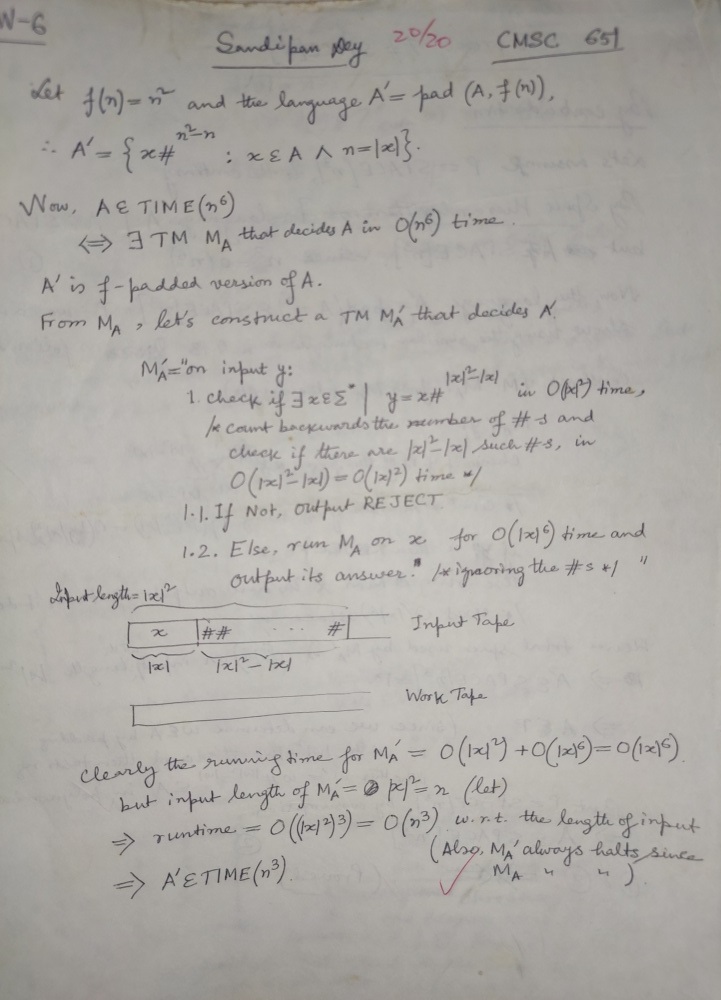 W-6
Sandipan Dey 20/20 CMSC 651
Let f(n) = n² and the language A' = pad (A, f(n)),
∴ A' = { x#^{n²-n} : x ∈ A ∧ n = |x| }.
Now, A ∈ TIME(n⁶)
⟺ ∃ TM M_A that decides A in O(n⁶) time.
A' is f-padded version of A.
From M_A, let's construct a TM M_A' that decides A'.
M_A' = "on input y:
1. check if ∃ x ∈ Σ* | y = x#^{|x|²-|x|} in O(|x|²) time,
/* count backwards the number of #s and
check if there are |x|²-|x| such #s, in
O(|x|²-|x|) = O(|x|²) time */
1.1. If Not, output REJECT
1.2. Else, run M_A on x for O(|x|⁶) time and
output its answer." /* ignoring the #s */ "
Input length = |x|²
x ## ... # Input Tape
|x| |x|²-|x|
Work Tape
Clearly the running time for M_A' = O(|x|²) + O(|x|⁶) = O(|x|⁶).
but input length of M_A' = |x|² = n (let)
⟹ runtime = O((|x|²)³) = O(n³) w.r.t. the length of input
(Also, M_A' always halts since
⟹ A' ∈ TIME(n³). M_A " " )